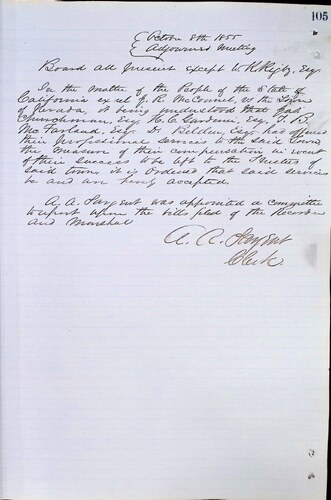 105
October 8th 1855
Adjourned Meeting
Board all present except W. K. Rigby, Esq
In the matter of the People of the State of
California ex rel J. R. McConnel, vs the Town
of Nevada, it being understood that
Churchman, Esq H. C. Gardner, Esq, T. B.
McFarland, Esq D. Belden, Esq. has offered
their professional services to the said town
the measure of their compensation in event
of their success to be left to the Trustees of
said town it is ordered that said services
be and are hereby accepted.
A. A. Sargent was appointed a committee
to report upon the bills filed of the Recorder
and Marshall
A. A. Sargent
Clerk.